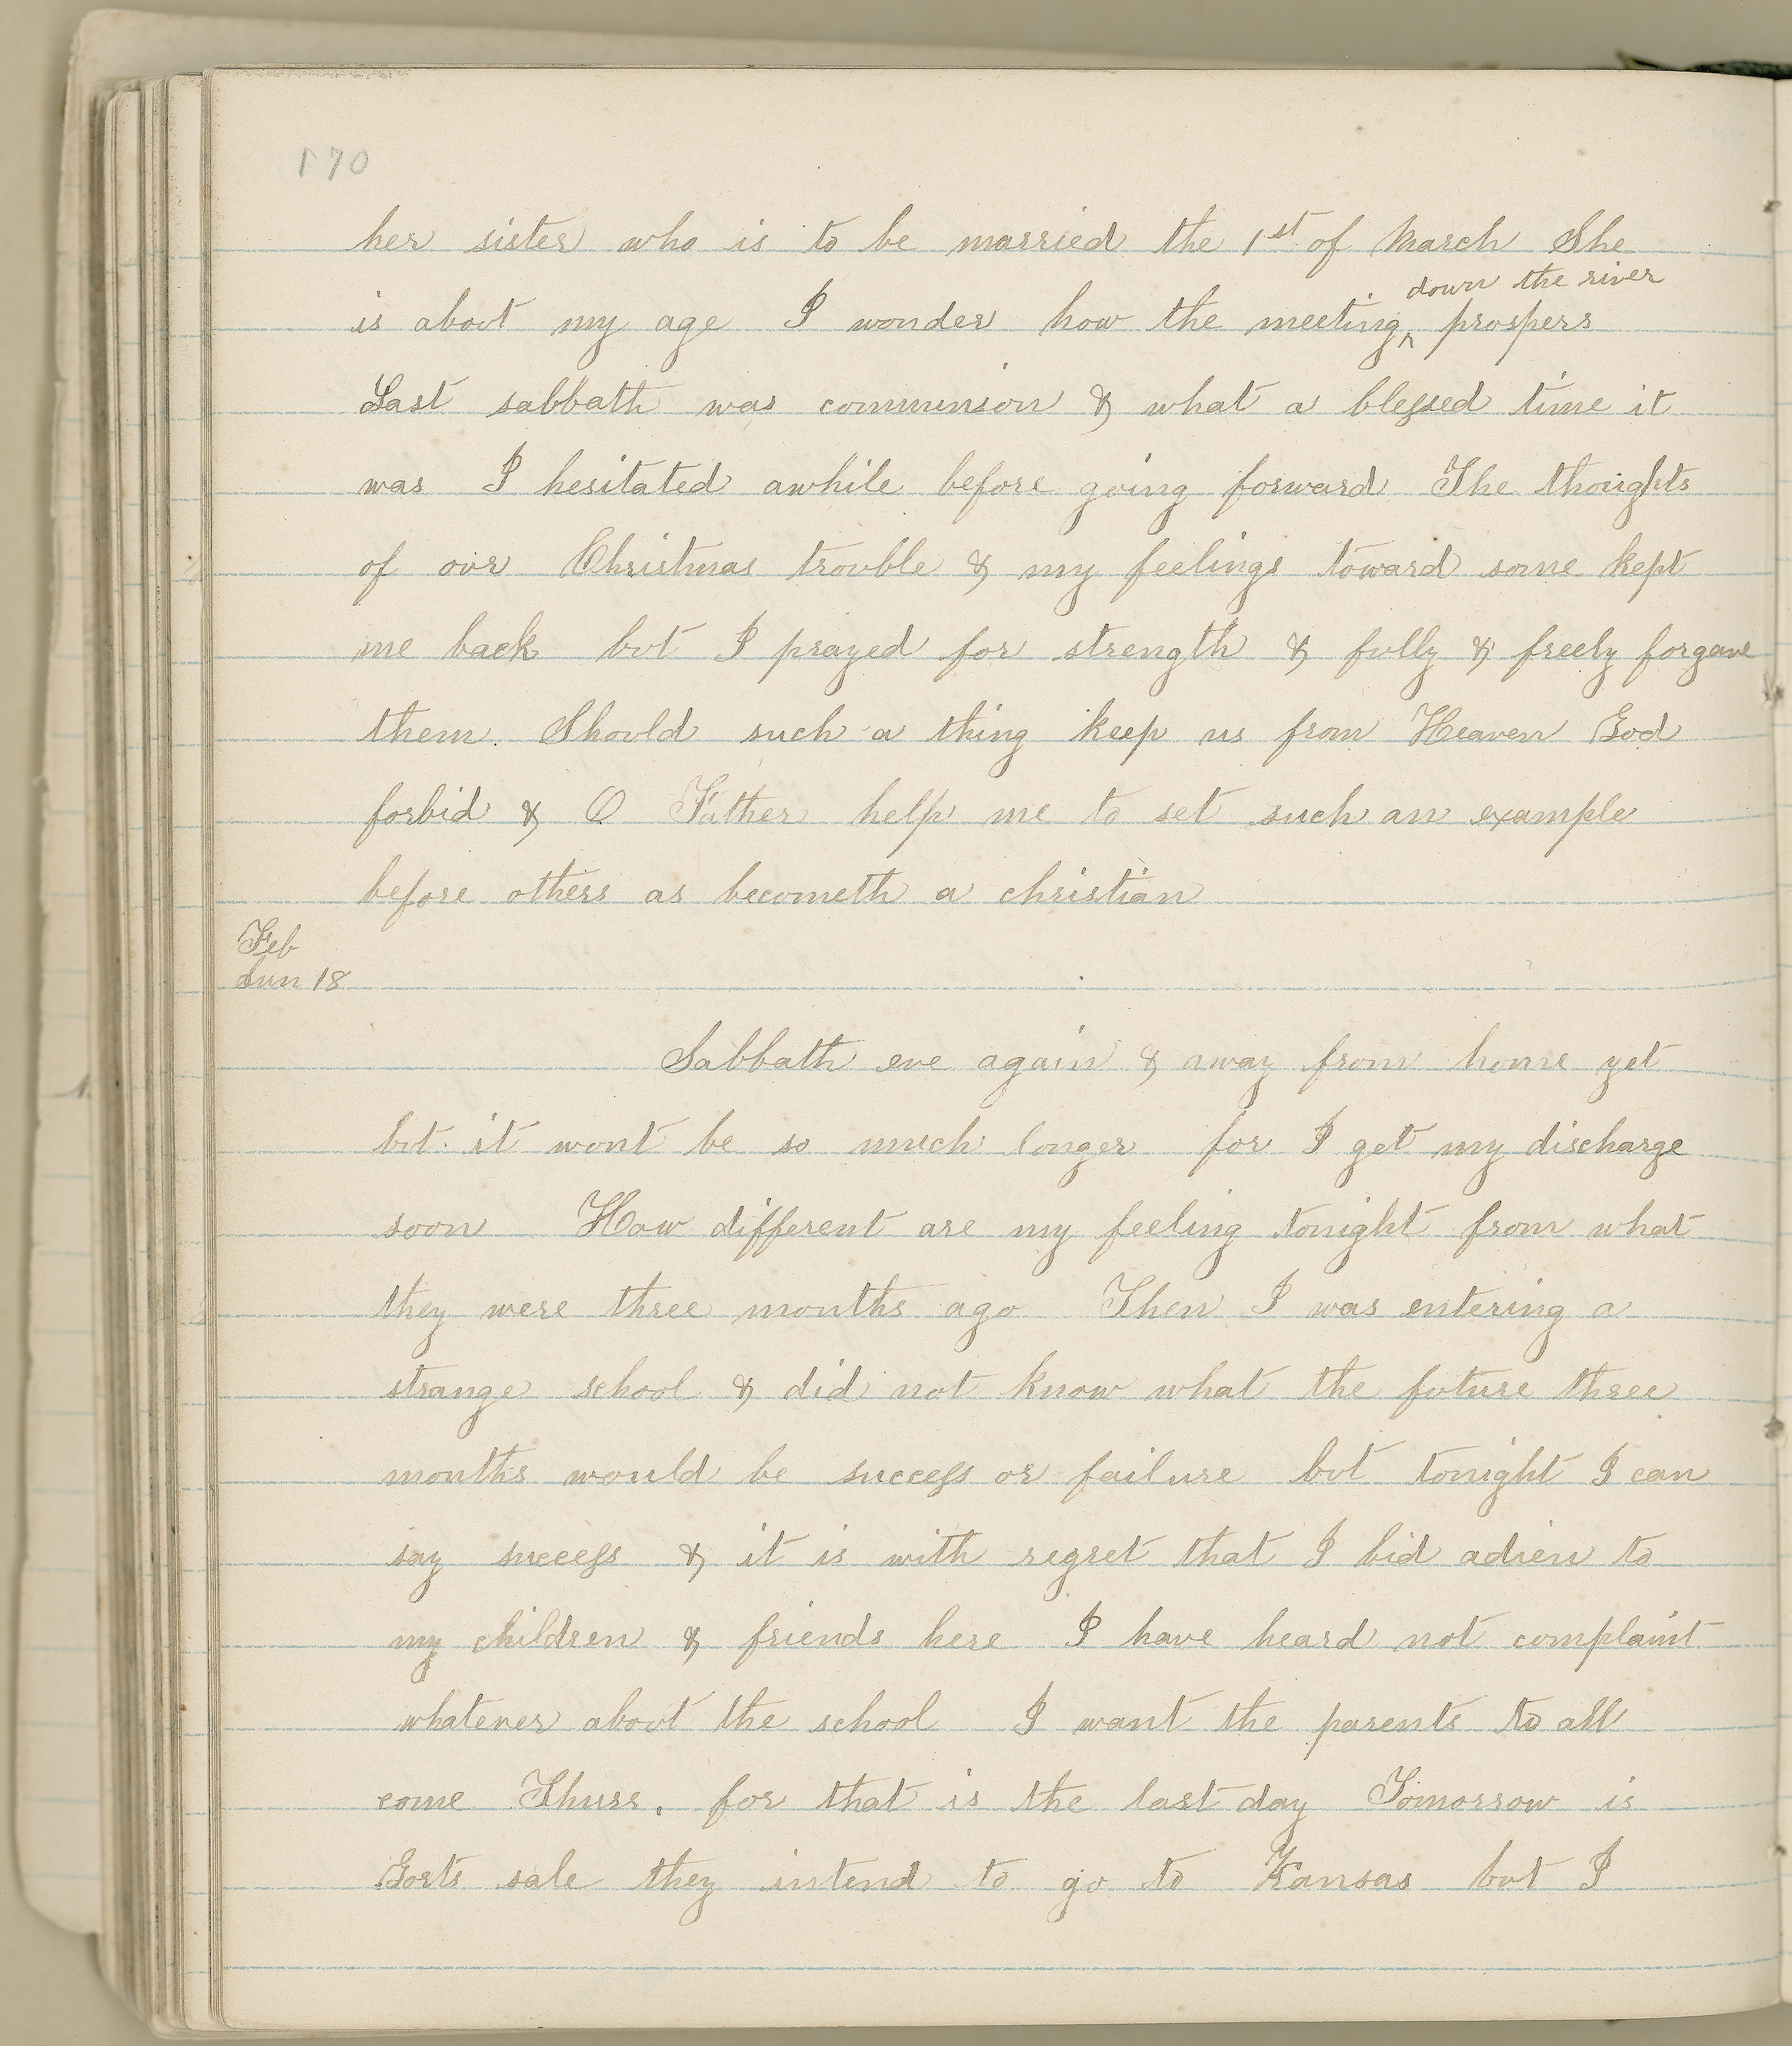 170
her sister who is to be married the 1st of March She
down the river
is about my age I wonder how the meeting ^ prospers
Last sabbath was communion & what a blessed time it
was I hesitated awhile before going forward The thoughts
of our Christmas trouble & my feelings toward some kept
me back but I prayed for strength & fully & freely forgave
them. Should such a thing keep us from Heaven God
forbid & O Father help me to set such an example
before others as becometh a christian
Feb
Sun 18
Sabbath eve again & away from home yet
but it wont be so much longer for I get my discharge
soon How different are my feeling tonight from what
they were three months ago Then I was entering a
strange school & did not know what the future three
months would be success or failure but tonight I can
say success & it is with regret that I bid adieu to
my children & friends here I have heard not complaint
whatever about the school I want the parents to all
come Thurs. for that is the last day Tomorrow is
Gorts sale they intend to go to Kansas but I